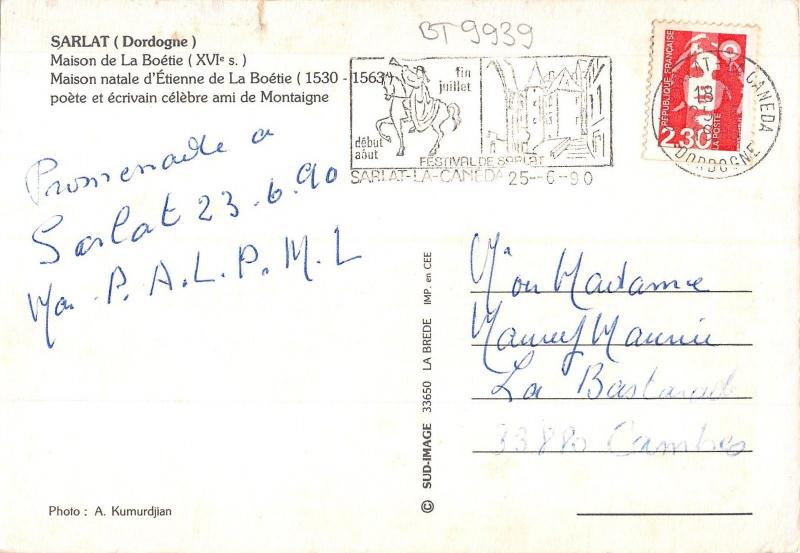 BT 9939
SARLAT ( Dordogne )
Maison de La Boétie ( XVIe s. )
Maison natale d'Étienne de La Boétie ( 1530 - 1563 )
poète et écrivain célèbre ami de Montaigne
fin
juillet
début
août
FESTIVAL DE SARLAT
SARLAT-LA-CANEDA 25-6-90
RÉPUBLIQUE FRANÇAISE
2,30
LA POSTE
CANEDA
18
DORDOGNE
Promenade a
Sarlat 23.6.90
P. A. L. P. M. L
Madame
La
33880 Cambes
© SUD-IMAGE 33650 LA BREDE IMP. en CEE
Photo : A. Kumurdjian